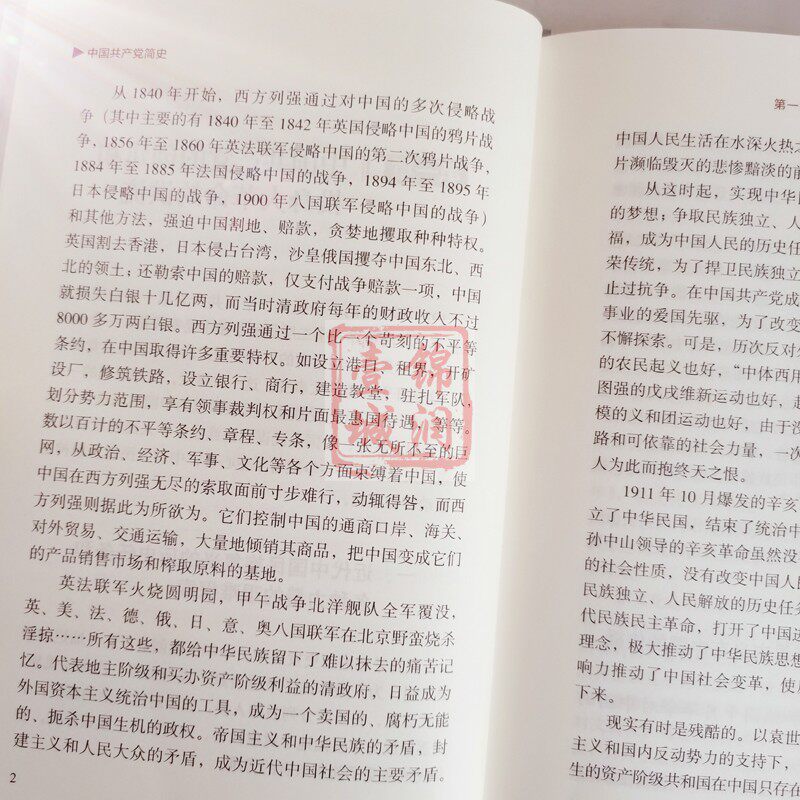 中国共产党简史
从 1840 年开始，西方列强通过对中国的多次侵略战
争（其中主要的有 1840 年至 1842 年英国侵略中国的鸦片战
争、1856 年至 1860 年英法联军侵略中国的第二次鸦片战争，
1884 年至 1885 年法国侵略中国的战争，1894 年至 1895 年
日本侵略中国的战争，1900 年八国联军侵略中国的战争）
和其他方法，强迫中国割地、赔款，贪婪地攫取种种特权。
英国割去香港，日本侵占台湾，沙皇俄国攫夺中国东北、西
北的领土；还勒索中国的赔款，仅支付战争赔款一项，中国
就损失白银十几亿两，而当时清政府每年的财政收入不过
8000 多万两白银。西方列强通过一个比一个苛刻的不平等
条约，在中国取得许多重要特权。如设立港口，租界，开矿
设厂，修筑铁路，设立银行、商行，建造教堂，驻扎军队，
划分势力范围，享有领事裁判权和片面最惠国待遇，等等。
数以百计的不平等条约、章程、专条，像一张无所不至的巨
网，从政治、经济、军事、文化等各个方面束缚着中国，使
中国在西方列强无尽的索取面前寸步难行，动辄得咎，而西
方列强则据此为所欲为。它们控制中国的通商口岸、海关、
对外贸易、交通运输，大量地倾销其商品，把中国变成它们
的产品销售市场和榨取原料的基地。
英法联军火烧圆明园，甲午战争北洋舰队全军覆没，
英、美、法、德、俄、日、意、奥八国联军在北京野蛮烧杀
淫掠……所有这些，都给中华民族留下了难以抹去的痛苦记
忆。代表地主阶级和买办资产阶级利益的清政府，日益成为
外国资本主义统治中国的工具，成为一个卖国的、腐朽无能
的、扼杀中国生机的政权。帝国主义和中华民族的矛盾，封
建主义和人民大众的矛盾，成为近代中国社会的主要矛盾。
2
第一
中国人民生活在水深火热之
片濒临毁灭的悲惨黯淡的前
从这时起，实现中华
的梦想；争取民族独立、人
福，成为中国人民的历史任
荣传统，为了捍卫民族独立
止过抗争。在中国共产党成
事业的爱国先驱，为了改变
不懈探索。可是，历次反对外
的农民起义也好，“中体西用
图强的戊戌维新运动也好，
模的义和团运动也好，由于没
路和可依靠的社会力量，一次
人为此而抱终天之恨。
1911 年 10 月爆发的辛亥
立了中华民国，结束了统治中
孙中山领导的辛亥革命虽然没
的社会性质，没有改变中国人民
民族独立、人民解放的历史任务
代民族民主革命，打开了中国进
理念，极大推动了中华民族思想
响力推动了中国社会变革，使
下来。
现实有时是残酷的。以袁世
主义和国内反动势力的支持下，
生的资产阶级共和国在中国只存在
锦润
壹城